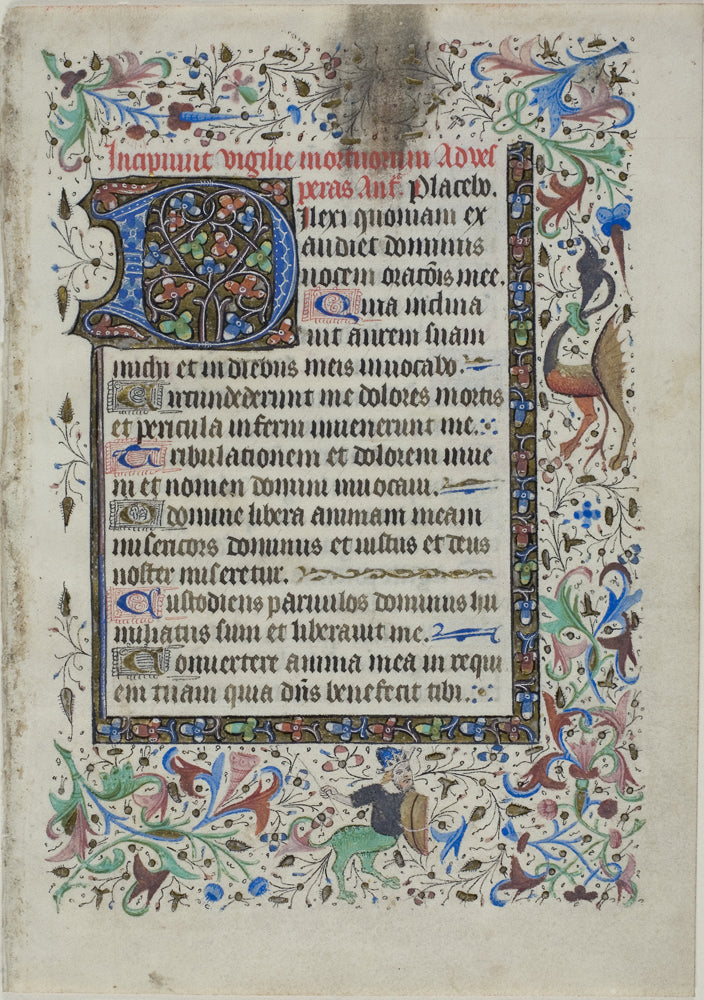 Incipiunt vigilie mortuorum Ad ves
peras Ant. Placebo.
Dilexi quoniam ex
audiet dominus
vocem oratois mee.
Quia inclina
vit aurem suam
michi et in diebus meis invocabo.
Circundederunt me dolores mortis
et pericula inferni invenerunt me.
Tribulationem et dolorem inve
ni et nomen domini invocavi.
O domine libera animam meam
misericors dominus et iustus et deus
noster miseretur.
Custodiens parvulos dominus hu
miliatus sum et liberavit me.
Convertere anima mea in requi
em tuam quia dns benefecit tibi.